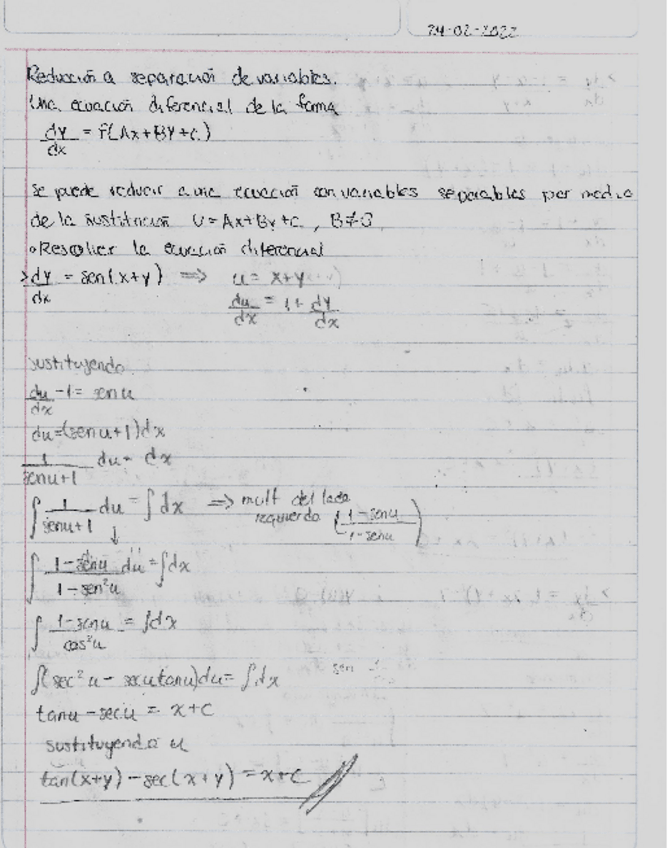 24-02-2022
Reducción a separación de variables.
Una ecuación diferencial de la forma
dy/dx = f(Ax+By+c)
Se puede reducir a una ecuación con variables separables por medio
de la sustitución U=Ax+By+c, B≠
•Resolver la ecuación diferencial
>dy/dx = sen(x+y) ⟹ u= x+y
du/dx = 1+ dy/dx
sustituyendo
du/dx -1= senu
du=(senu+1)dx
1/senu+1 du= dx
∫ 1/senu+1 du = ∫dx ⟹ mult del lado
izquierdo (1-senu/1-senu)
↓
∫ 1-senu/1-sen²u du = ∫dx
∫ 1-senu/cos²u = ∫dx
∫(sec²u - secutanu)du= ∫dx
tanu-secu = x+c
sustituyendo u
tan(x+y)-sec(x+y)=x+c